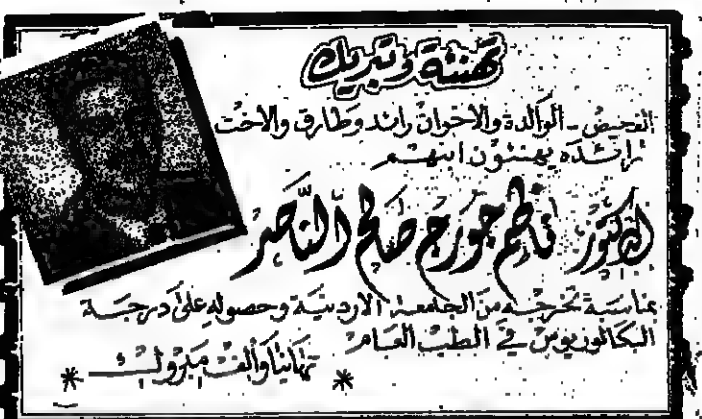 تهنئة وتبريك
الفحيص - الوالدة والاخوان رائد وطارق والاخت
رائده يهنئون ابنهم
الدكتور ناظم جورج صالح الناصر
بمناسبة تخرجه من الجامعة الاردنية وحصوله على درجة
البكالوريوس في الطب العام
تهانينا والف مبروك